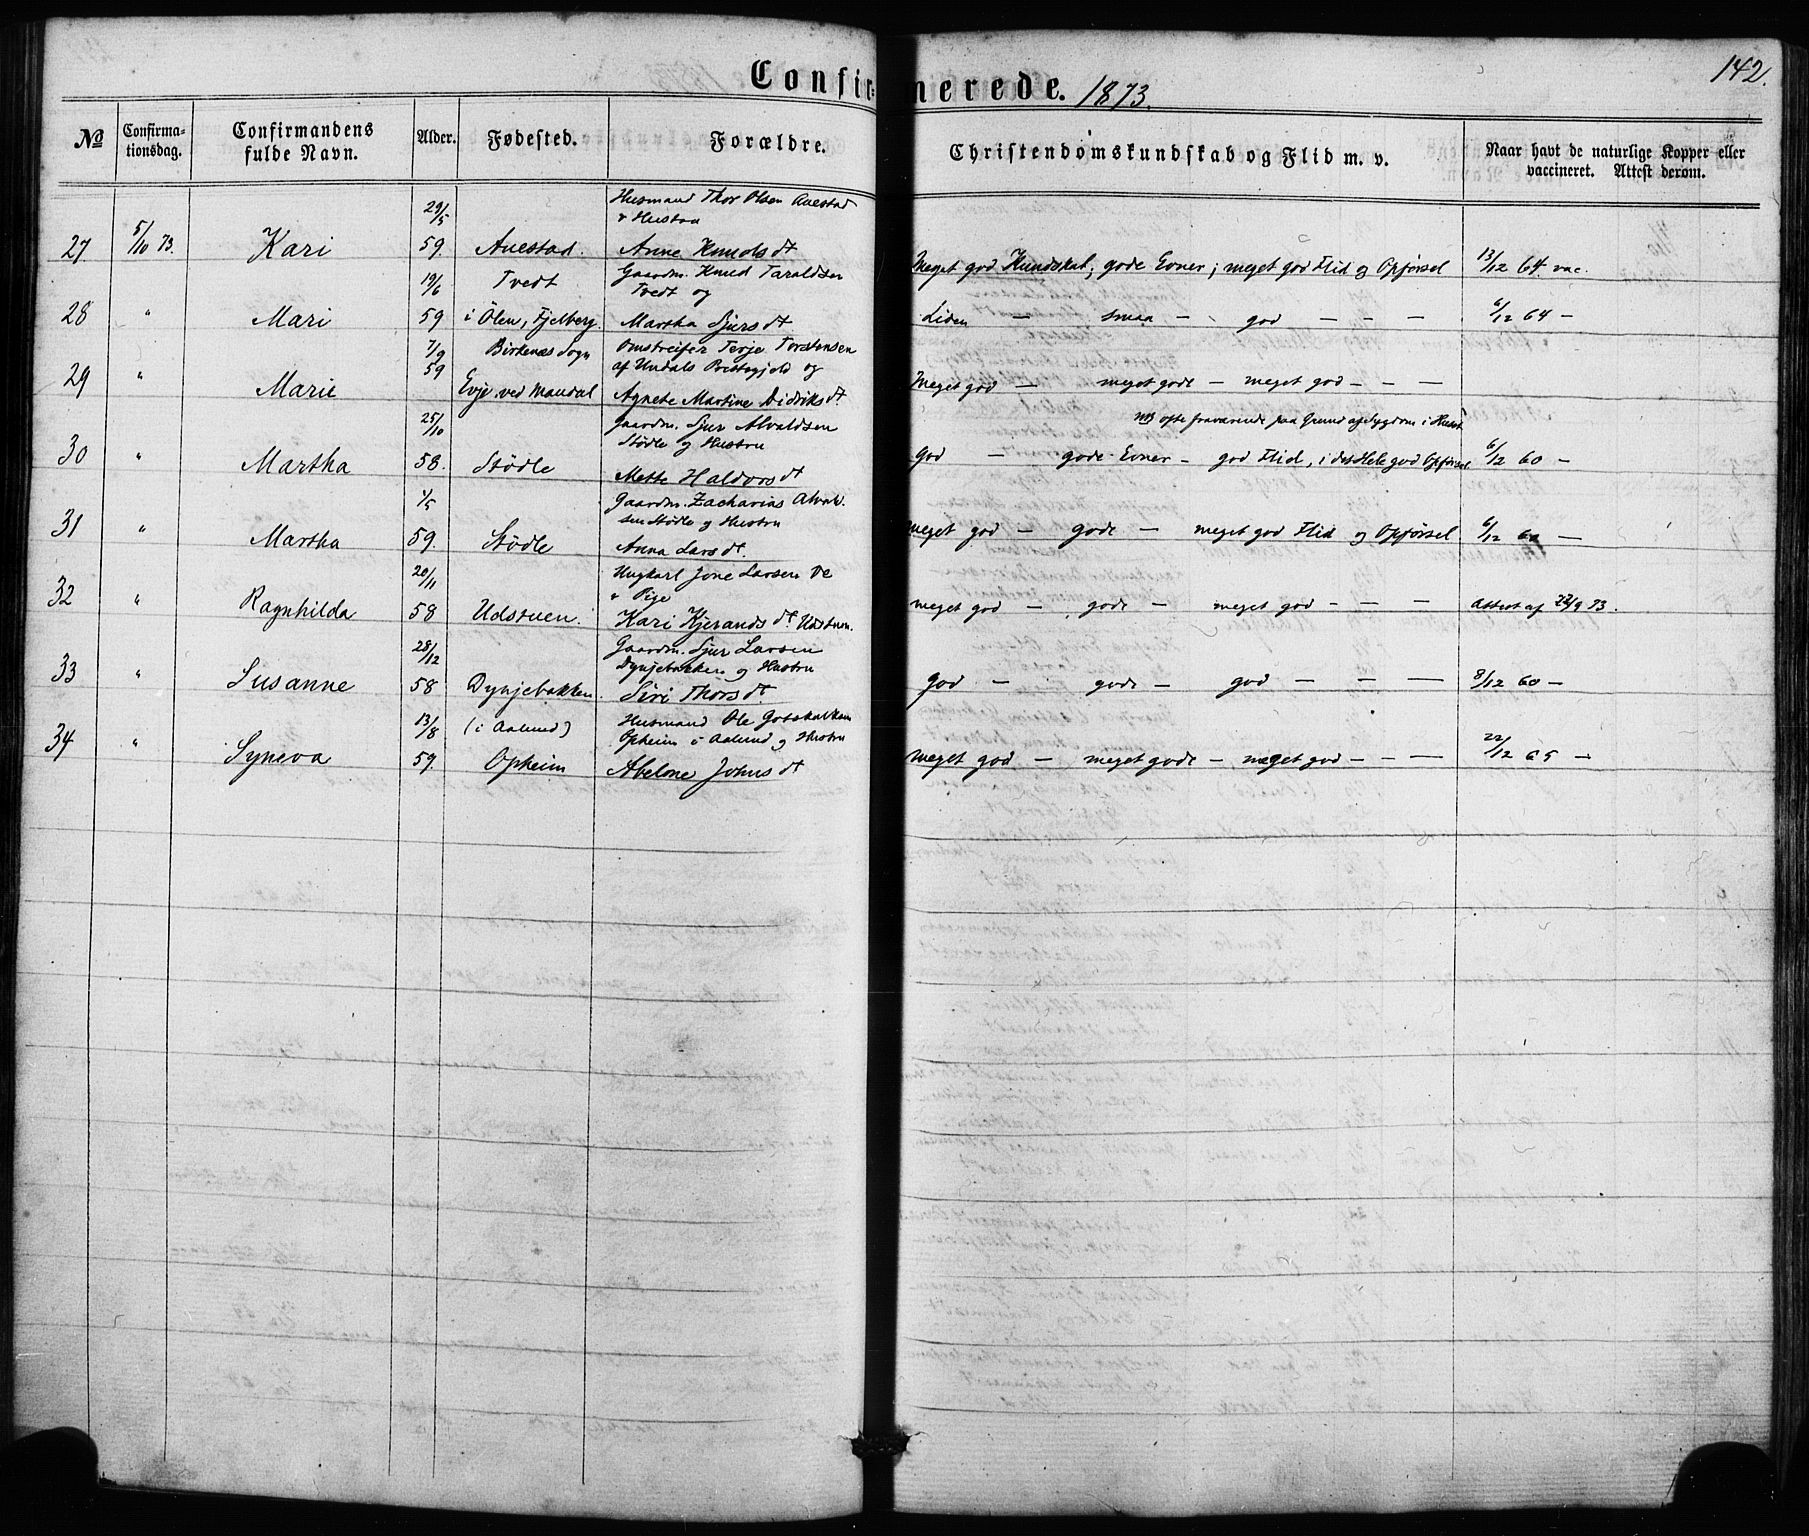 142.
Confirmerede. 1873.
No
Confirma-
tionsdag.
Confirmandens
fulde Navn.
Alder.
Fødested.
Forældre.
Christendomskundskab og Flid m. v.
Naar havt de naturlige Kopper eller
vaccineret. Attest derom.
29/5 Husmand Thor Olsen Auestad
& Hustru
27. 5/10 73. Kari 59. Auestad. Anne Knudsdt Meget god Kundskab, gode Evner; meget god Flid og Opførsel 13/12 64. vac.
19/6 Tvedt Gaardm. Knud Taraldsen
Tvedt og
28 " Mari 59 i Ölen, Fjelberg. Martha Sjursdt Liden — smaa — god — — — 6/12 64 —
7/9 Birkenæs Sogn Omstreifer Terje Torstensen
59 af Undals Prstegjeld og
29 " Marie Evje ved Mandal Agnete Martine Didriksdt. Meget god — meget gode — meget god — — —
25/10 Gaardm. Sjur Alvaldsen NB ofte fraværende paa Grund af Sygdom i Huset
Stödle og Hustru
30 " Martha 58. Stödle Mette Haldorsdt God — gode Evner — god Flid, i det Hele god Opførsel 6/12 60 —
1/5 Gaardm. Zacharias Alvald-
sen Stödle og Hustru
31 " Martha 59. Stödle Anna Larsdt. meget god — gode — meget god Flid og Opførsel 6/12 60 —
20/11 Ungkarl Jone Larsen De
" Pige
32 " Ragnhilda 58 Udstuen. Kari Kjerandsdt. Udstuen. meget god — gode — meget god — — — Attest af 22/9 73.
28/12 Gaardm. Sjur Larsen
Dynjebakken og Hustru
33 " Susanne 58 Dynjebakken. Siri Thorsdt god — gode — god — — — 8/12 60 —
13/8 (i Aalund) Husmand Ole Gotskalksen
Opheim i Aalund og Hustru
34 " Syneva 59. Opheim Abelone Johnsdt meget god — meget gode — meget god — — — 22/12 65 —